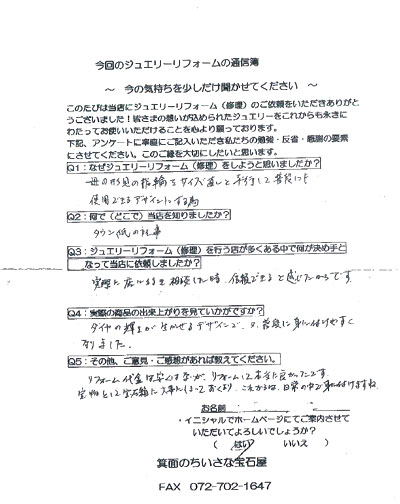 今回のジュエリーリフォームの通信簿
～ 今の気持ちを少しだけ聞かせてください ～
このたびは当店にジュエリーリフォーム（修理）のご依頼をいただきありがと
うございました！皆さまの想いが込められたジュエリーをこれからも永きに
わたってお使いいただけることを心より願っております。
下記、アンケートに率直にご記入いただき私たちの勉強・反省・感謝の要素
にさせてください。このご縁を大切にしたいと思います。
Q1：なぜジュエリーリフォーム（修理）をしようと思いましたか？
母の形見の指輪をサイズ直しと手直しして普段にも
使用できるデザインにする為
Q2：何で（どこで）当店を知りましたか？
タウン紙の記事
Q3：ジュエリーリフォーム（修理）を行う店が多くある中で何が決め手と
なって当店に依頼しましたか？
実際に店に行き相談した時、信頼できると感じたからです
Q4：実際の商品の出来上がりを見ていかがですか？
ダイヤの輝きが生かせるデザインで、又、普段に身に付けやすく
なりました。
Q5：その他、ご意見・ご感想があれば教えてください。
リフォーム代金は安くはないが、リフォームして本当に良かったです
宝物として宝石箱に大事にしまっておくより、これからは、日常の中で身に付けますね
お名前
・イニシャルでホームページにてご案内させて
いただいてよろしいでしょうか？
（ はい いいえ ）
箕面のちいさな宝石屋
FAX 072-702-1647